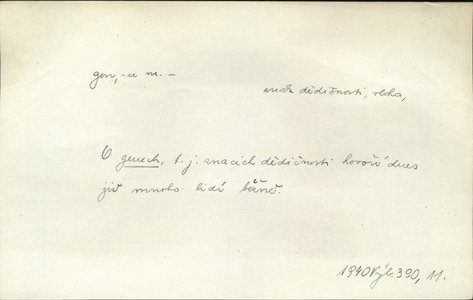 gen, -u m. –
znak dědičnosti, vloha,
O genech, t. j. znacích dědičnosti hovoří dnes
již mnoho lidí běžně.
1940 Výb. 390, 11.